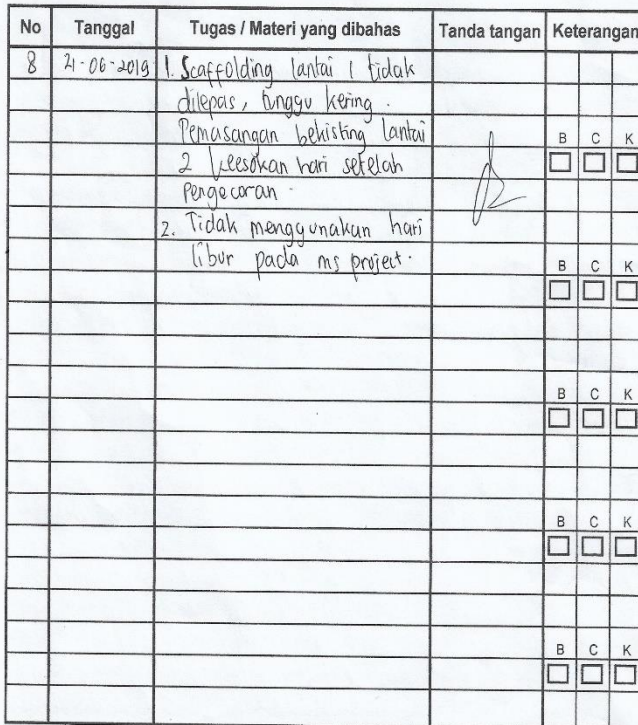 No Tanggal Tugas / Materi yang dibahas Tanda tangan Keterangan
8 21-06-2019 1. Scaffolding lantai 1 tidak
dilepas, tunggu kering.
Pemasangan bekisting lantai
B C K
2 keesokan hari setelah
Pengecoran.
2. Tidak menggunakan hari
libur pada ms project.
B C K
B C K
B C K
B C K